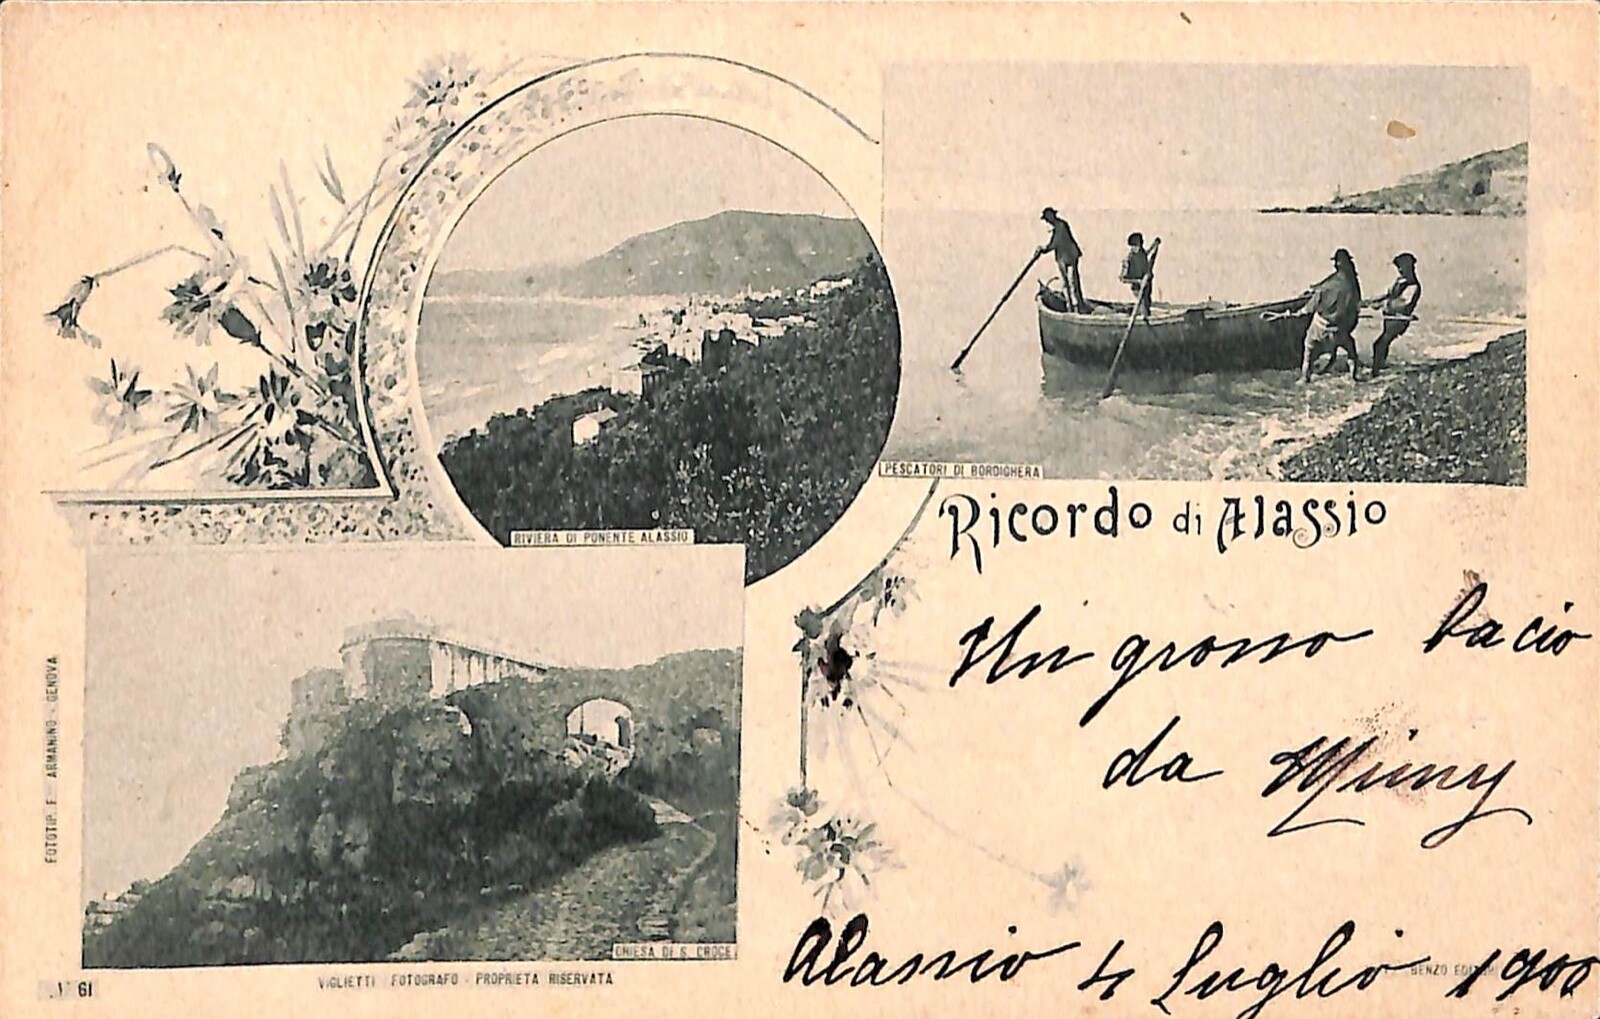 PESCATORI DI BORDIGHERA
RIVIERA DI PONENTE ALASSIO
Ricordo di Alassio
Un grosso bacio
da Mimy
CHIESA DI S. CROCE
Alassio 4 Luglio 1900
BENZO EDITORE
FOTOTIP. F. ARMANINO - GENOVA
VIGLIETTI FOTOGRAFO - PROPRIETA RISERVATA
61